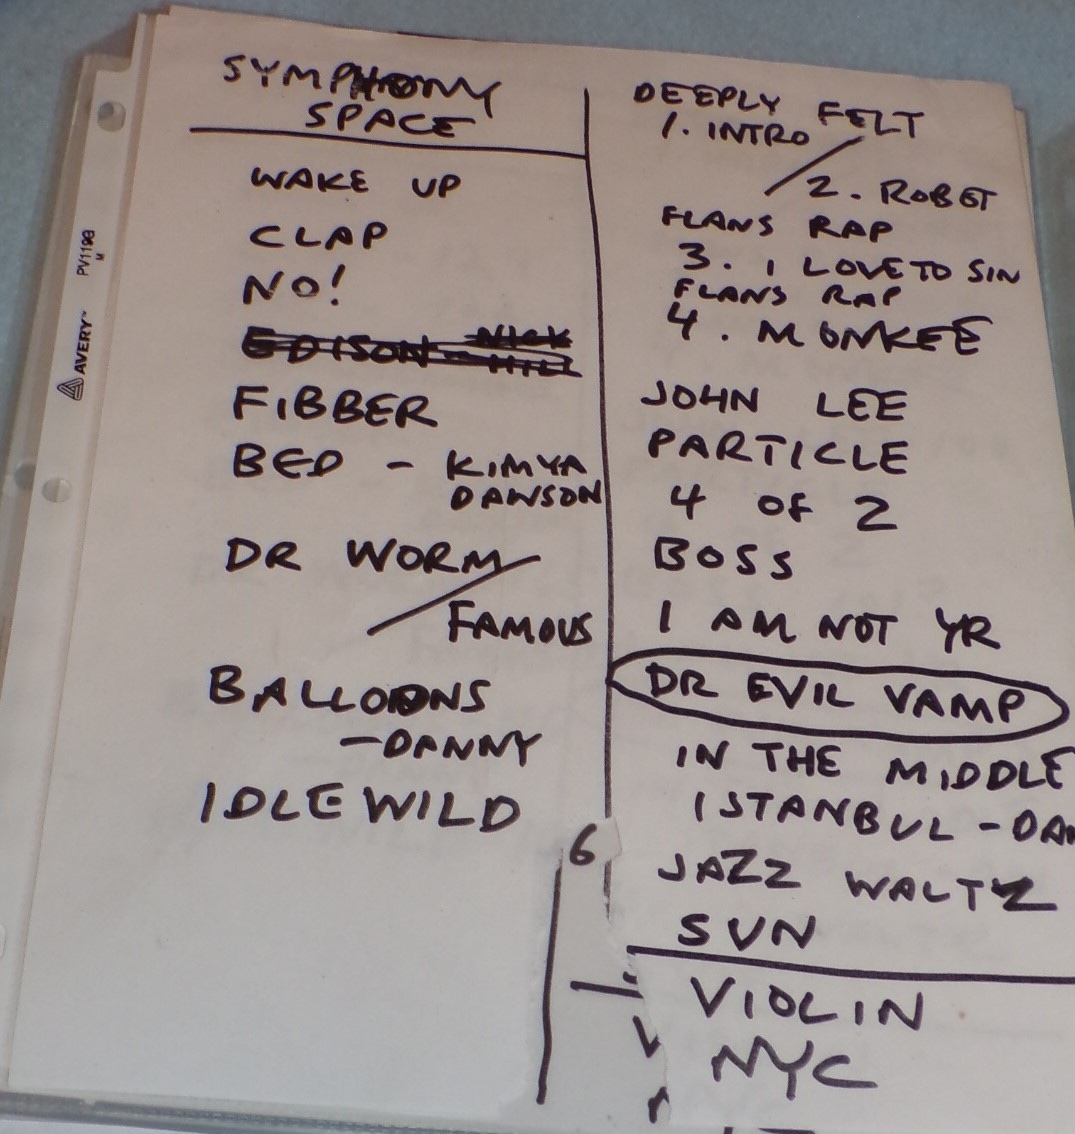 SYMPHONY
SPACE
WAKE UP
CLAP
NO!
EDISON - NICK
HILL
FIBBER
BED - KIMYA
DAWSON
DR WORM
FAMOUS
BALLOONS
-DANNY
IDLEWILD
DEEPLY FELT
1. INTRO
2. ROBET
FLANS RAP
3. I LOVE TO SIN
FLANS RAP
4. MONKEE
JOHN LEE
PARTICLE
4 OF 2
BOSS
I AM NOT YR
DR EVIL VAMP
IN THE MIDDLE
ISTANBUL - DAN
JAZZ WALTZ
SUN
VIOLIN
NYC
6
AVERY™ PV119G
M